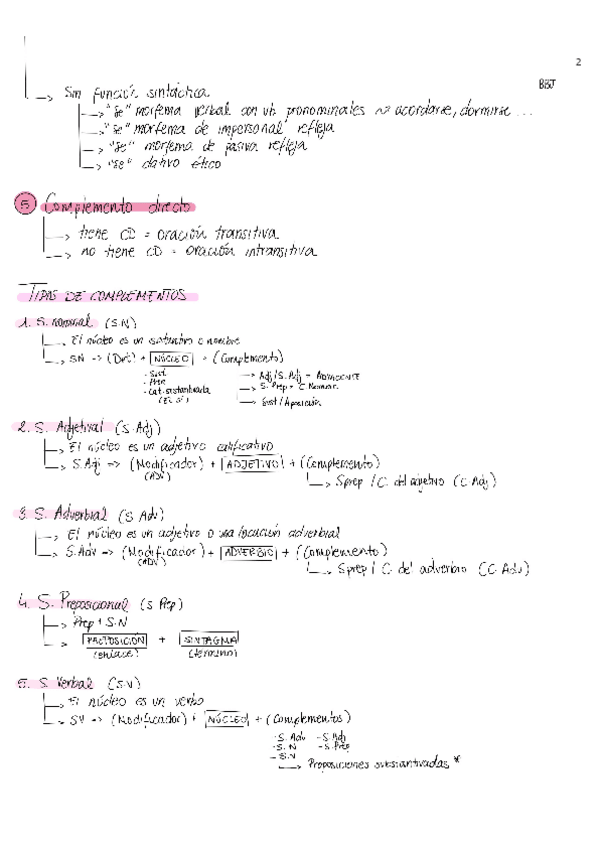 2
BBJ
Sin función sintáctica
"Se" morfema verbal con vb pronominales ~> acordarse, dormirse ...
"Se" morfema de impersonal refleja
"Se" morfema de pasiva refleja
"Se" dativo ético
5 Complemento directo
tiene CD = oración transitiva
no tiene CD = oración intransitiva
TIPOS DE COMPLEMENTOS
1. S. nominal (S.N)
El núcleo es un sustantivo o nombre
SN -> (Det) + NÚCLEO + (Complemento)
- Sust
- Pron
- Cat. sustantivada
(El sí)
Adj/S. Adj - ADYACENTE
S. Prep + C. Nominal
Sust/Aposición
2. S. Adjetival (S. Adj)
El núcleo es un adjetivo calificativo
S. Adj => (Modificador) + ADJETIVO + (Complemento)
(ADV)
Sprep / C. del adjetivo (C. Adj)
3. S. Adverbial (S Adv)
El núcleo es un adjetivo o una locución adverbial
S. Adv => (Modificador) + ADVERBIO + (Complemento)
(ADV)
Sprep / C. del adverbio (C. Adv)
4. S. Preposicional (S Prep)
Prep + S.N
PREPOSICIÓN + SINTAGMA
(enlace) (término)
5. S Verbal (S.V)
El núcleo es un verbo
SV -> (Modificador) + NÚCLEO + (Complementos)
- S. Adv - S. Adj
- S. N - S. Prep
- S. V
Proposiciones sustantivadas *